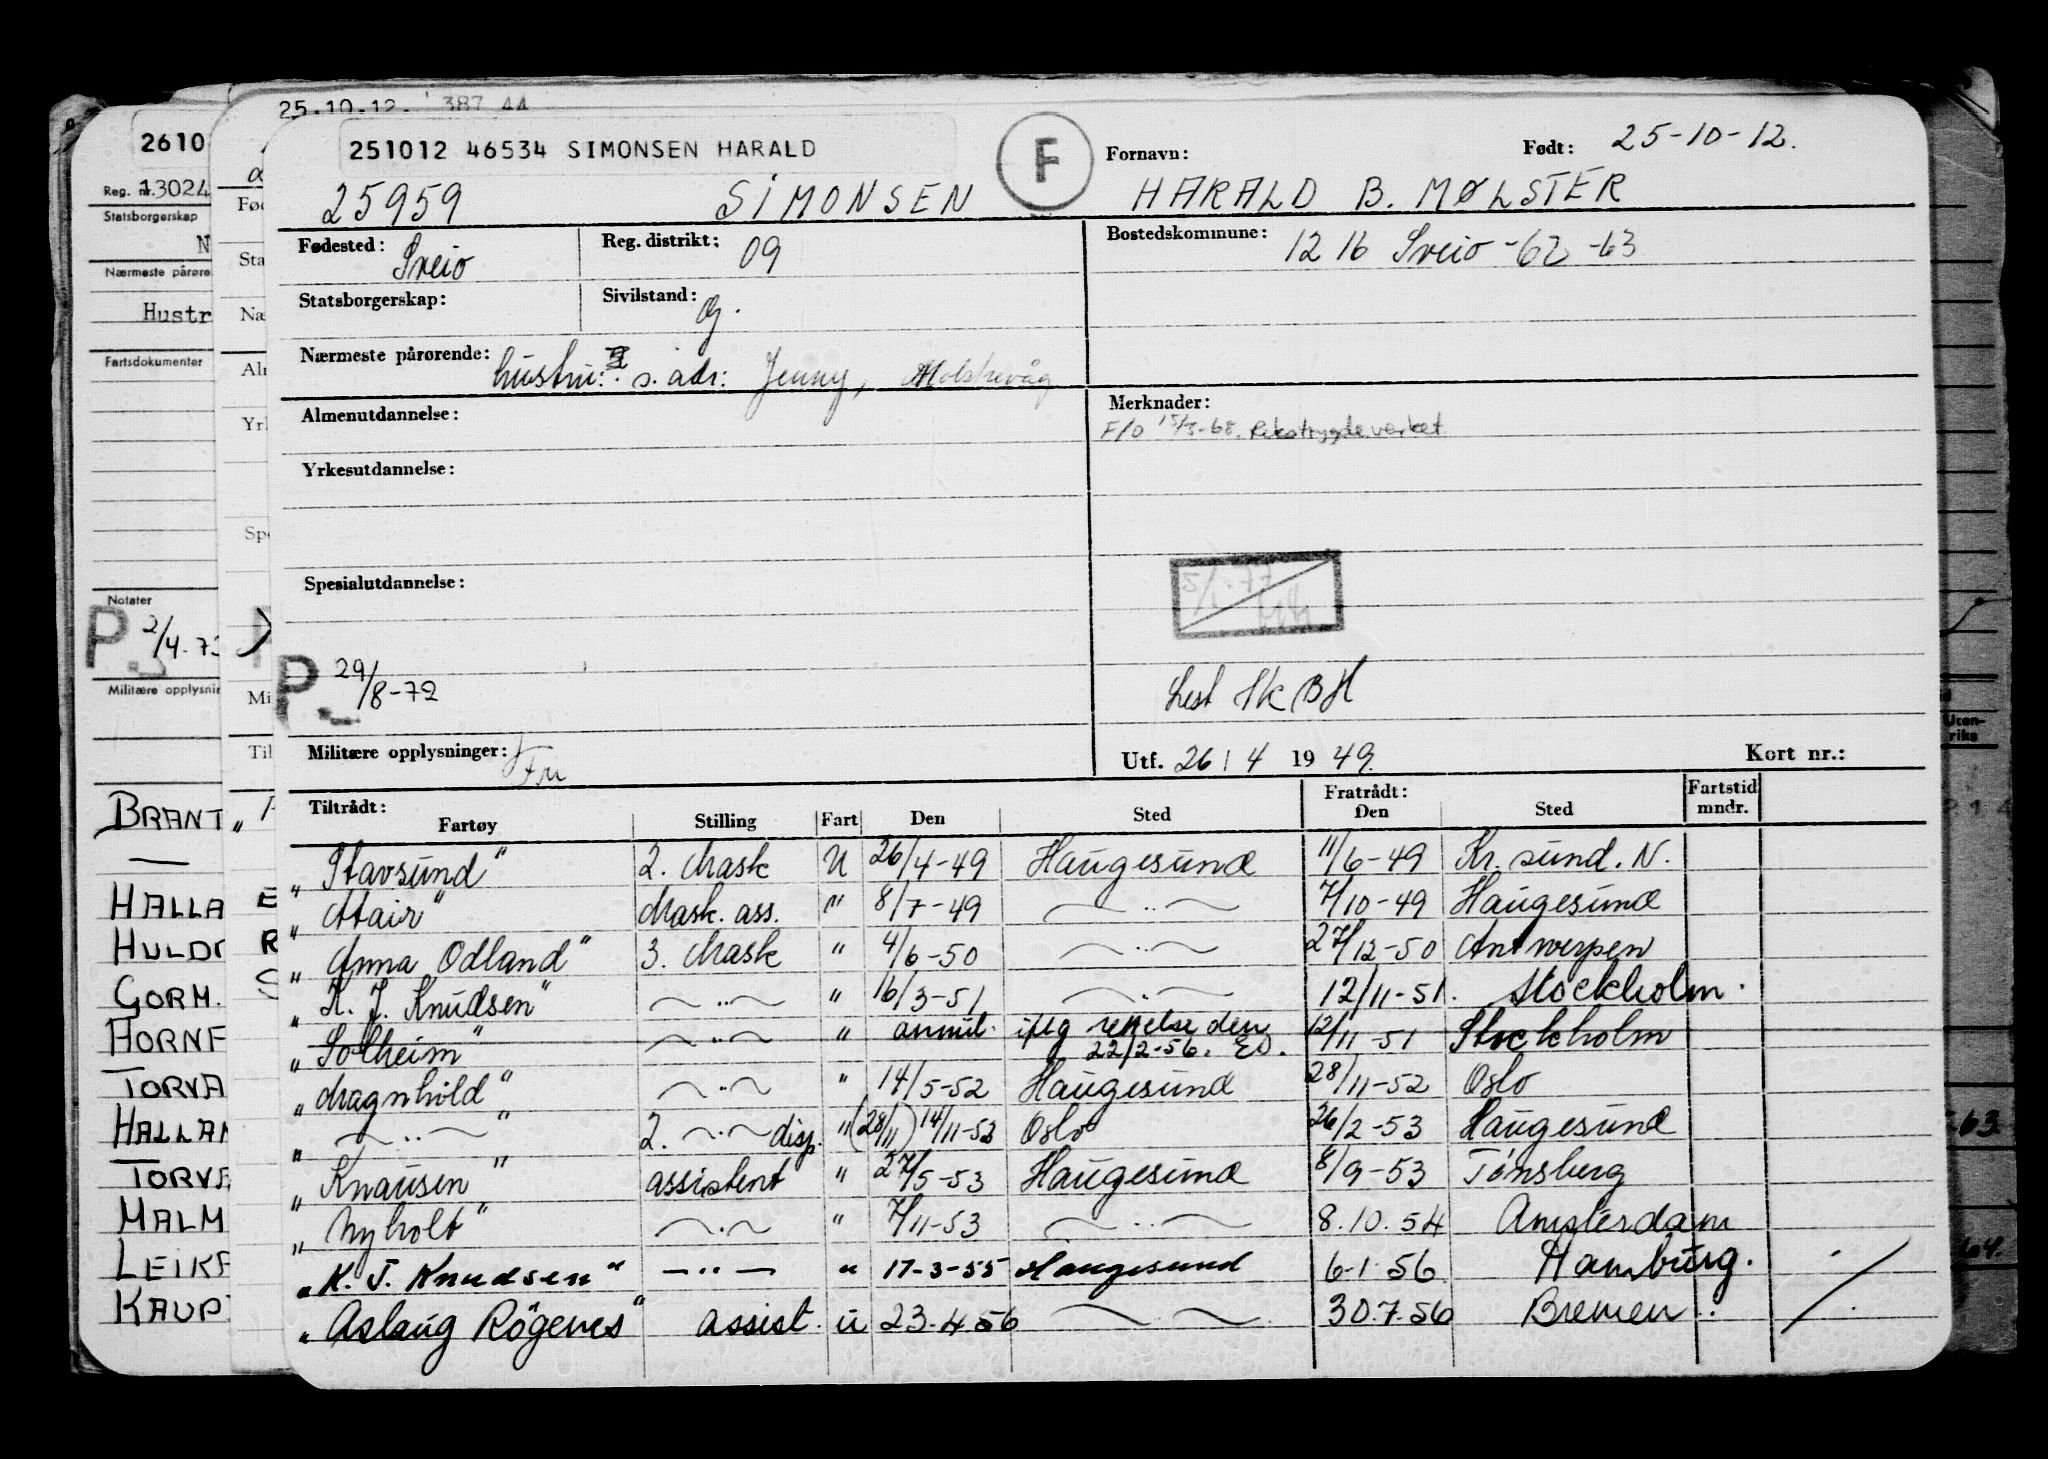 25.10.12. 387 44
2610
251012 46534 SIMONSEN HARALD
F
Fornavn:
Født: 25-10-12.
Reg. nr. 13024
25959 SIMONSEN HARALD B. MØLSTER
Statsborgerskap
N
Nærmeste pårøre
Hustr
Fartsdokumenter
Notater
P 2/4-73
Militære opplysnin
Fødested: Sveio
Reg. distrikt: 09
Bostedskommune: 1216 Sveio -62 -63
Statsborgerskap:
Sivilstand: g.
Nærmeste pårørende: hustru: s. adr: Jenny,
Almenutdannelse:
Merknader:
F/O 15/3-68. Rikstrygdeverket
Yrkesutdannelse:
Spesialutdannelse:
5/1-77
P 29/8-72
Lest Sk BH
Militære opplysninger: Fri
Utf. 26/4 1949.
Kort nr.:
Tiltrådt:
Fartøy Stilling Fart Den Sted
Fratrådt:
Den Sted
Fartstid mndr.
"Stavsund" 2. Mask U 26/4-49 Haugesund 11/6-49 Kr. sund. N.
"Atair" Mask. ass. " 8/7-49 —"— 7/10-49 Haugesund
"Anna Odland" 3. Mask " 4/6-50 —"— 27/12-50 Antwerpen
"K. J. Knudsen" —"— " 16/3-51 —"— 12/11-51. Stockholm.
"Solheim" —"— " annul. iflg rettelse den 22/2-56. ED. 12/11-51 Stockholm
"Magnhild" —"— " 14/5-52 Haugesund 28/11-52 Oslo
"—"—" 2. —"— disp. " (28/11) 14/11-52 Oslo 26/2-53 Haugesund
"Knausen" assistent " 27/5-53 Haugesund 8/9-53 Tønsberg
"Nyholt" —"— " 7/11-53 —"— 8.10.54 Amsterdam
"K. J. Knudsen" —"— " 17-3-55 Haugesund 6-1-56 Hamburg.
"Aslaug Rögenes" assist. u 23.4.56 —"— 30.7.56 Bremen
BRANT
HALLA
HULD
GORM.
HORNF
TORVA
HALLAN
TORVA
MALM
LEIKA
KAUP
Uten-
riks
63.
64.